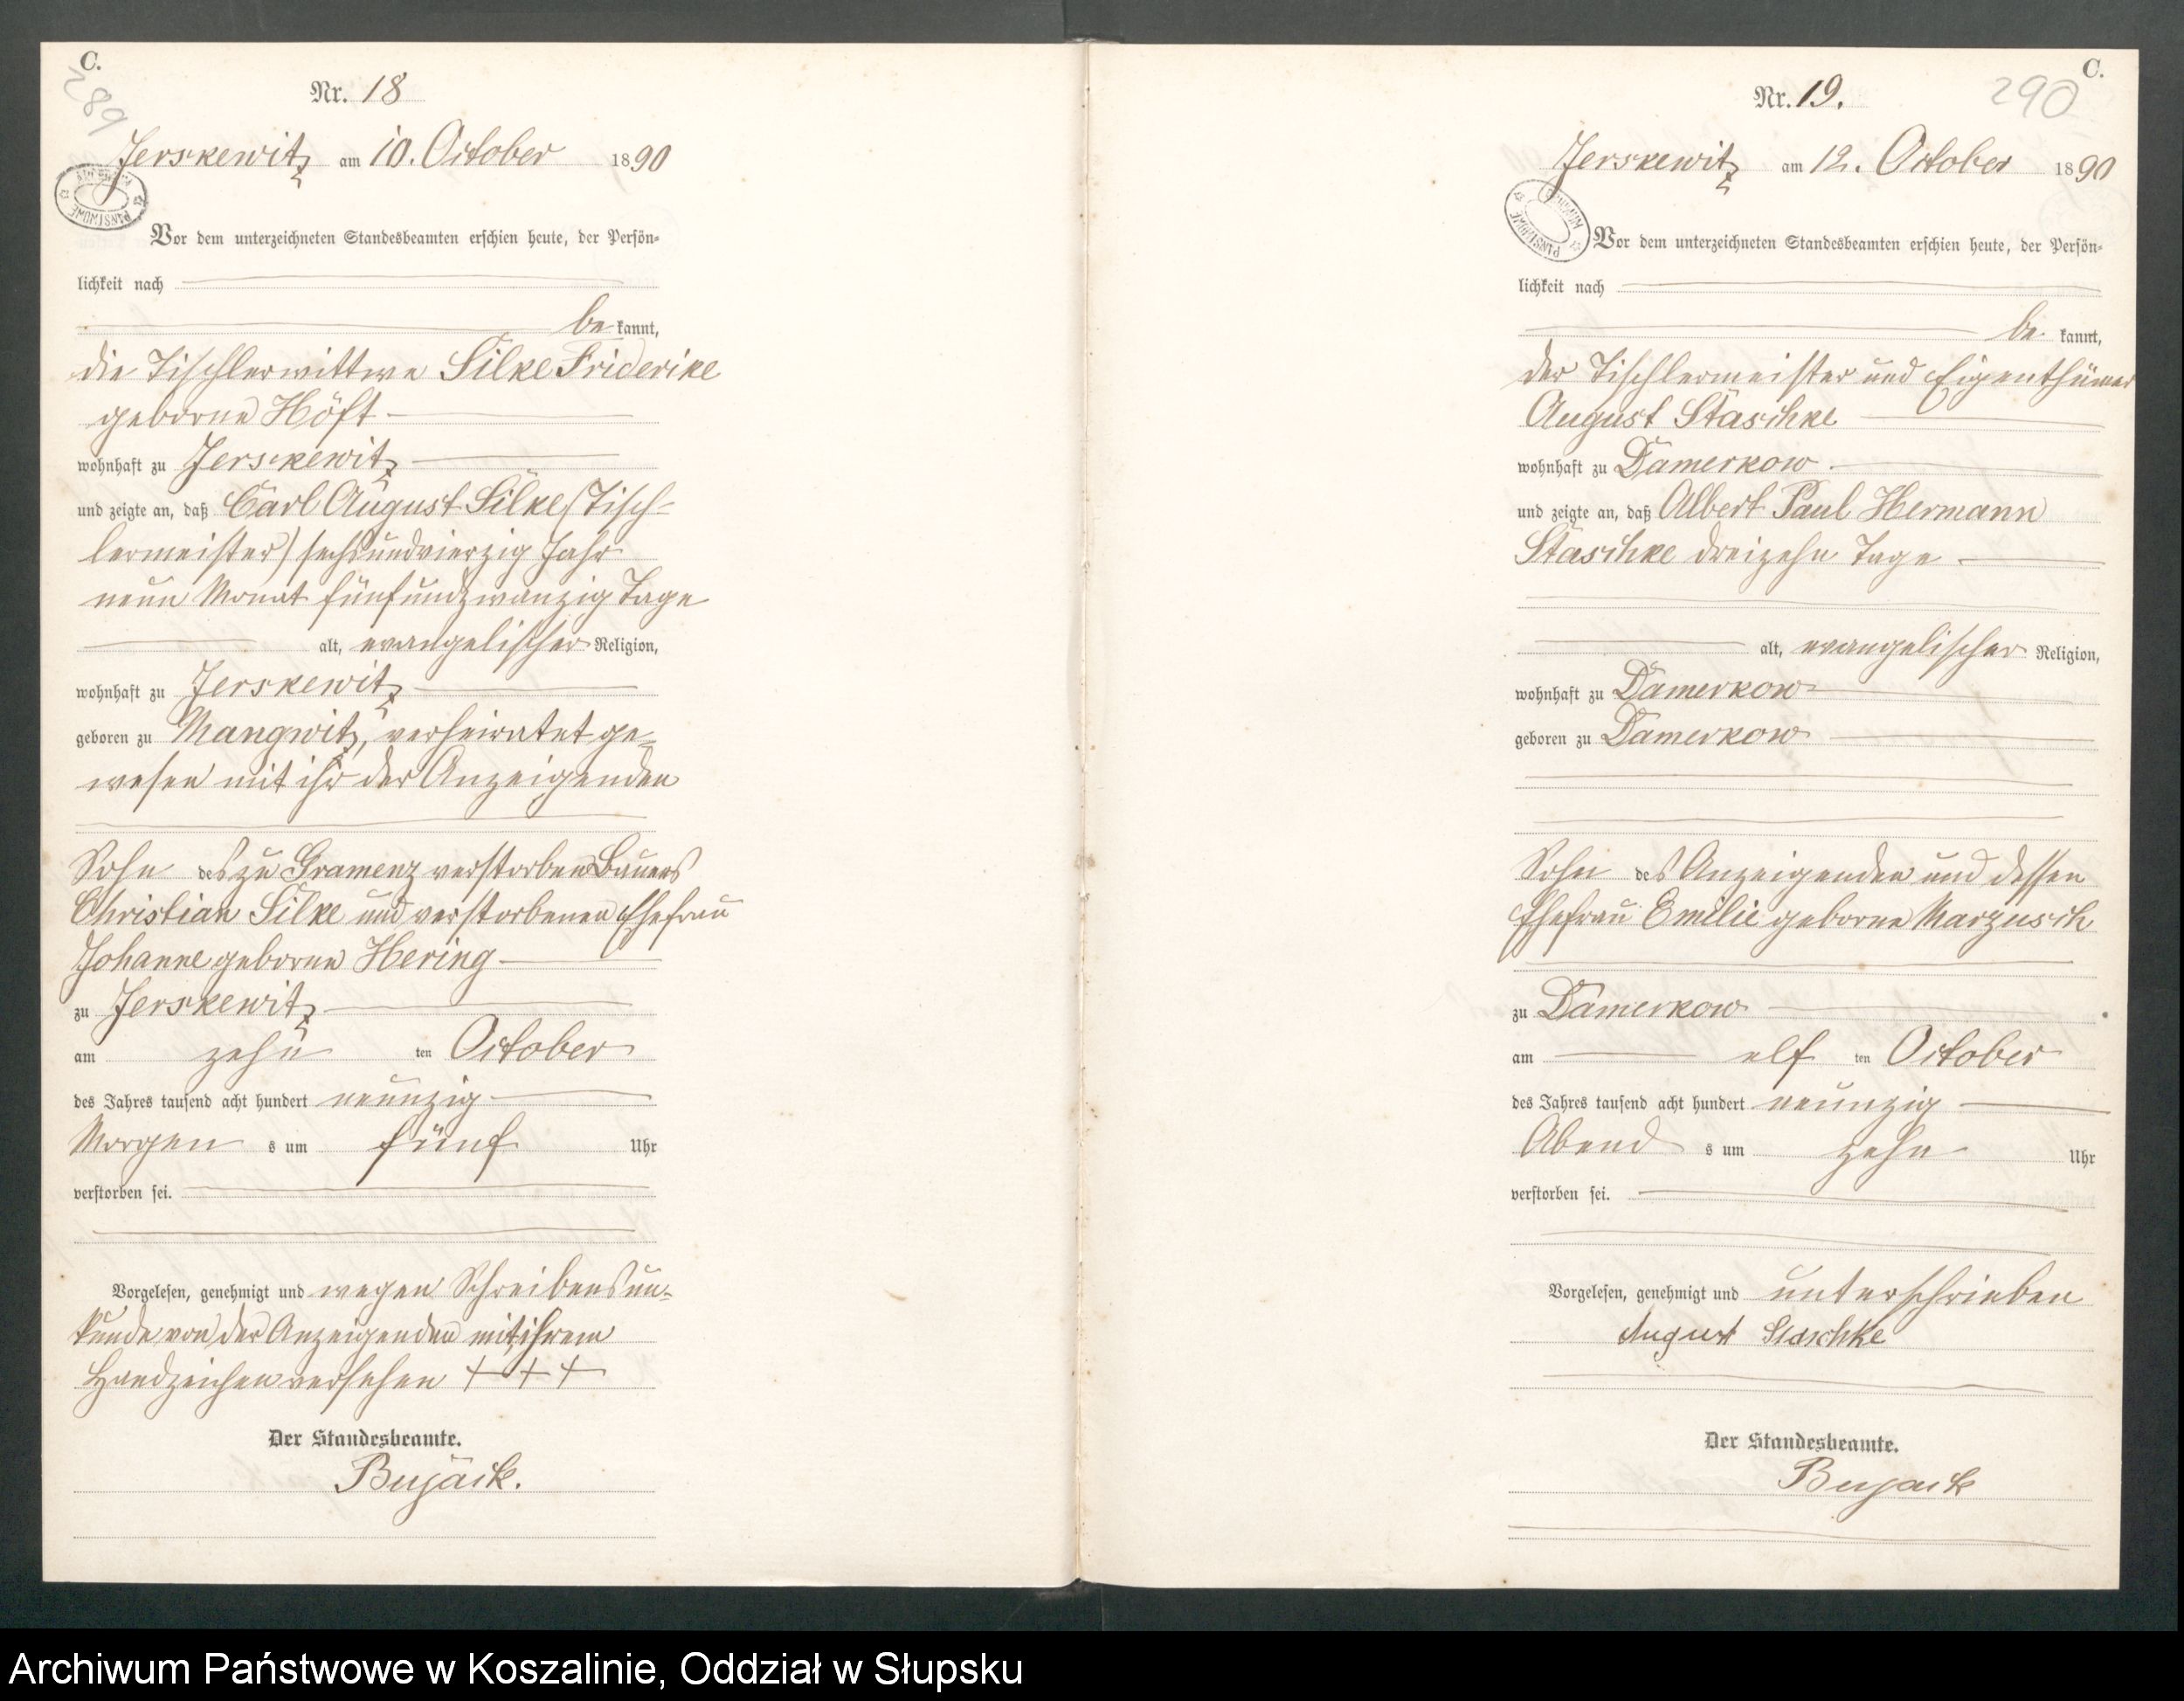 C.
289
Nr. 18
Jerskewitz am 10. October 1890
Vor dem unterzeichneten Standesbeamten erschien heute, der Persön-
lichkeit nach
be kannt,
die Tischlerwittwe Silke Friderike
geborne Höft
wohnhaft zu Jerskewitz
und zeigte an, daß Carl August Silke (Tisch-
lermeister) sechsundvierzig Jahr
neun Monat fünfundzwanzig Tage
alt, evangelischer Religion,
wohnhaft zu Jerskewitz
geboren zu Mangwitz, verheiratet ge-
wesen mit ihr der Anzeigenden
Sohn des zu Gramenz verstorben Bauers
Christian Silke und verstorbenen Ehefrau
Johanne geborne Hering
zu Jerskewitz
am zehn ten October
des Jahres tausend acht hundert neunzig
Morgen s um fünf Uhr
verstorben sei.
Vorgelesen, genehmigt und wegen Schreibensun-
kunde von der Anzeigenden mit ihrem
Handzeichen versehen + + +
Der Standesbeamte.
Bujack.
C.
290
Nr. 19.
Jerskewitz am 12. October 1890
Vor dem unterzeichneten Standesbeamten erschien heute, der Persön-
lichkeit nach
be kannt,
der Tischlermeister und Eigenthümer
August Staschke
wohnhaft zu Damerkow
und zeigte an, daß Albert Paul Hermann
Staschke dreizehn Tage
alt, evangelischer Religion,
wohnhaft zu Damerkow
geboren zu Damerkow
Sohn des Anzeigenden und dessen
Ehefrau Emilie geborne Marzusch
zu Damerkow
am elf ten October
des Jahres tausend acht hundert neunzig
Abend s um zehn Uhr
verstorben sei.
Vorgelesen, genehmigt und unterschrieben
August Staschke
Der Standesbeamte.
Bujack
Archiwum Państwowe w Koszalinie, Oddział w Słupsku